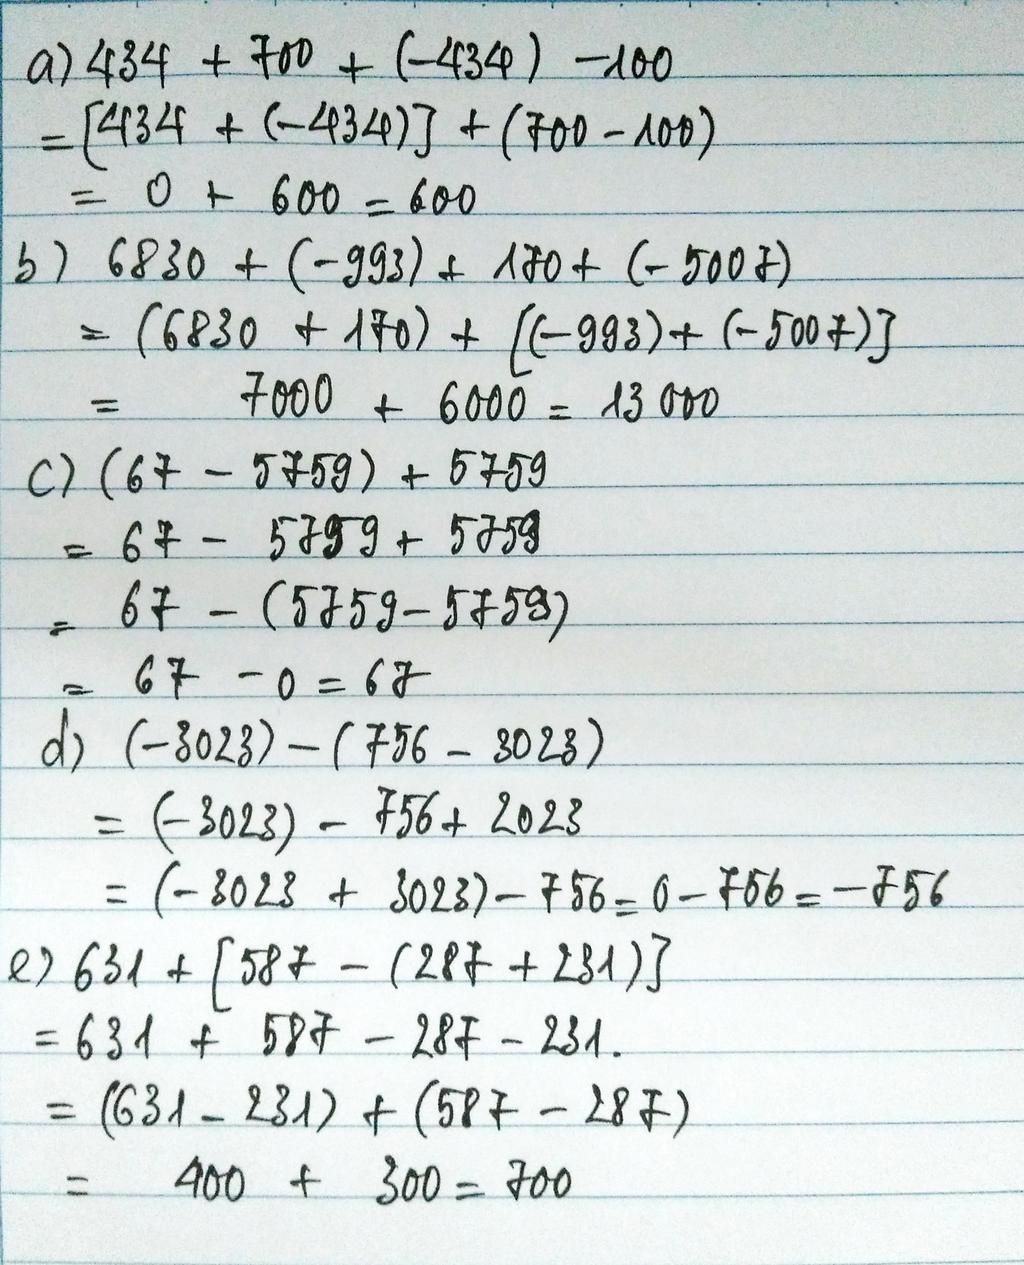 a) 434 + 700 + (-434) - 100
= [434 + (-434)] + (700 - 100)
= 0 + 600 = 600
b) 6830 + (-993) + 170 + (-5007)
= (6830 + 170) + [(-993) + (-5007)]
= 7000 + 6000 = 13 000
c) (67 - 5759) + 5759
= 67 - 5759 + 5759
= 67 - (5759 - 5759)
= 67 - 0 = 67
d) (-3023) - (756 - 3023)
= (-3023) - 756 + 2023
= (-3023 + 3023) - 756 = 0 - 756 = -756
e) 631 + [587 - (287 + 231)]
= 631 + 587 - 287 - 231.
= (631 - 231) + (587 - 287)
= 400 + 300 = 700